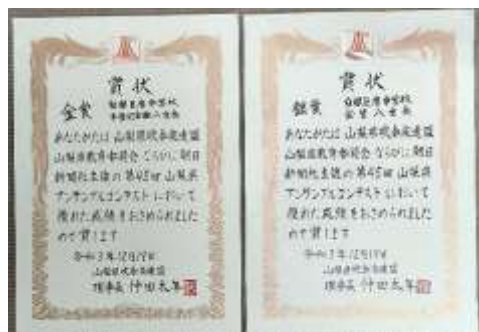 賞状
金賞
あなたがたは 山梨県吹奏楽連盟
山梨県教育委員会 ならびに 朝日
新聞社主催の 第45回 山梨県
アンサンブルコンテスト において
優れた成績をおさめられました
ので賞します
令和3年12月19日
山梨県吹奏楽連盟
理事長
賞状
銀賞
あなたがたは 山梨県吹奏楽連盟
山梨県教育委員会 ならびに 朝日
新聞社主催の 第45回 山梨県
アンサンブルコンテスト において
優れた成績をおさめられました
ので賞します
令和3年12月19日
山梨県吹奏楽連盟
理事長